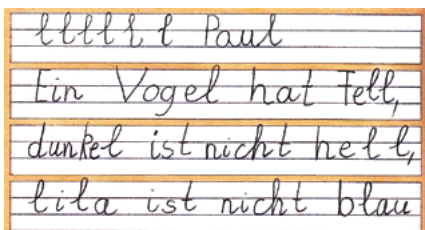 l l l l l l Paul
Ein Vogel hat Fell,
dunkel ist nicht hell,
lila ist nicht blau